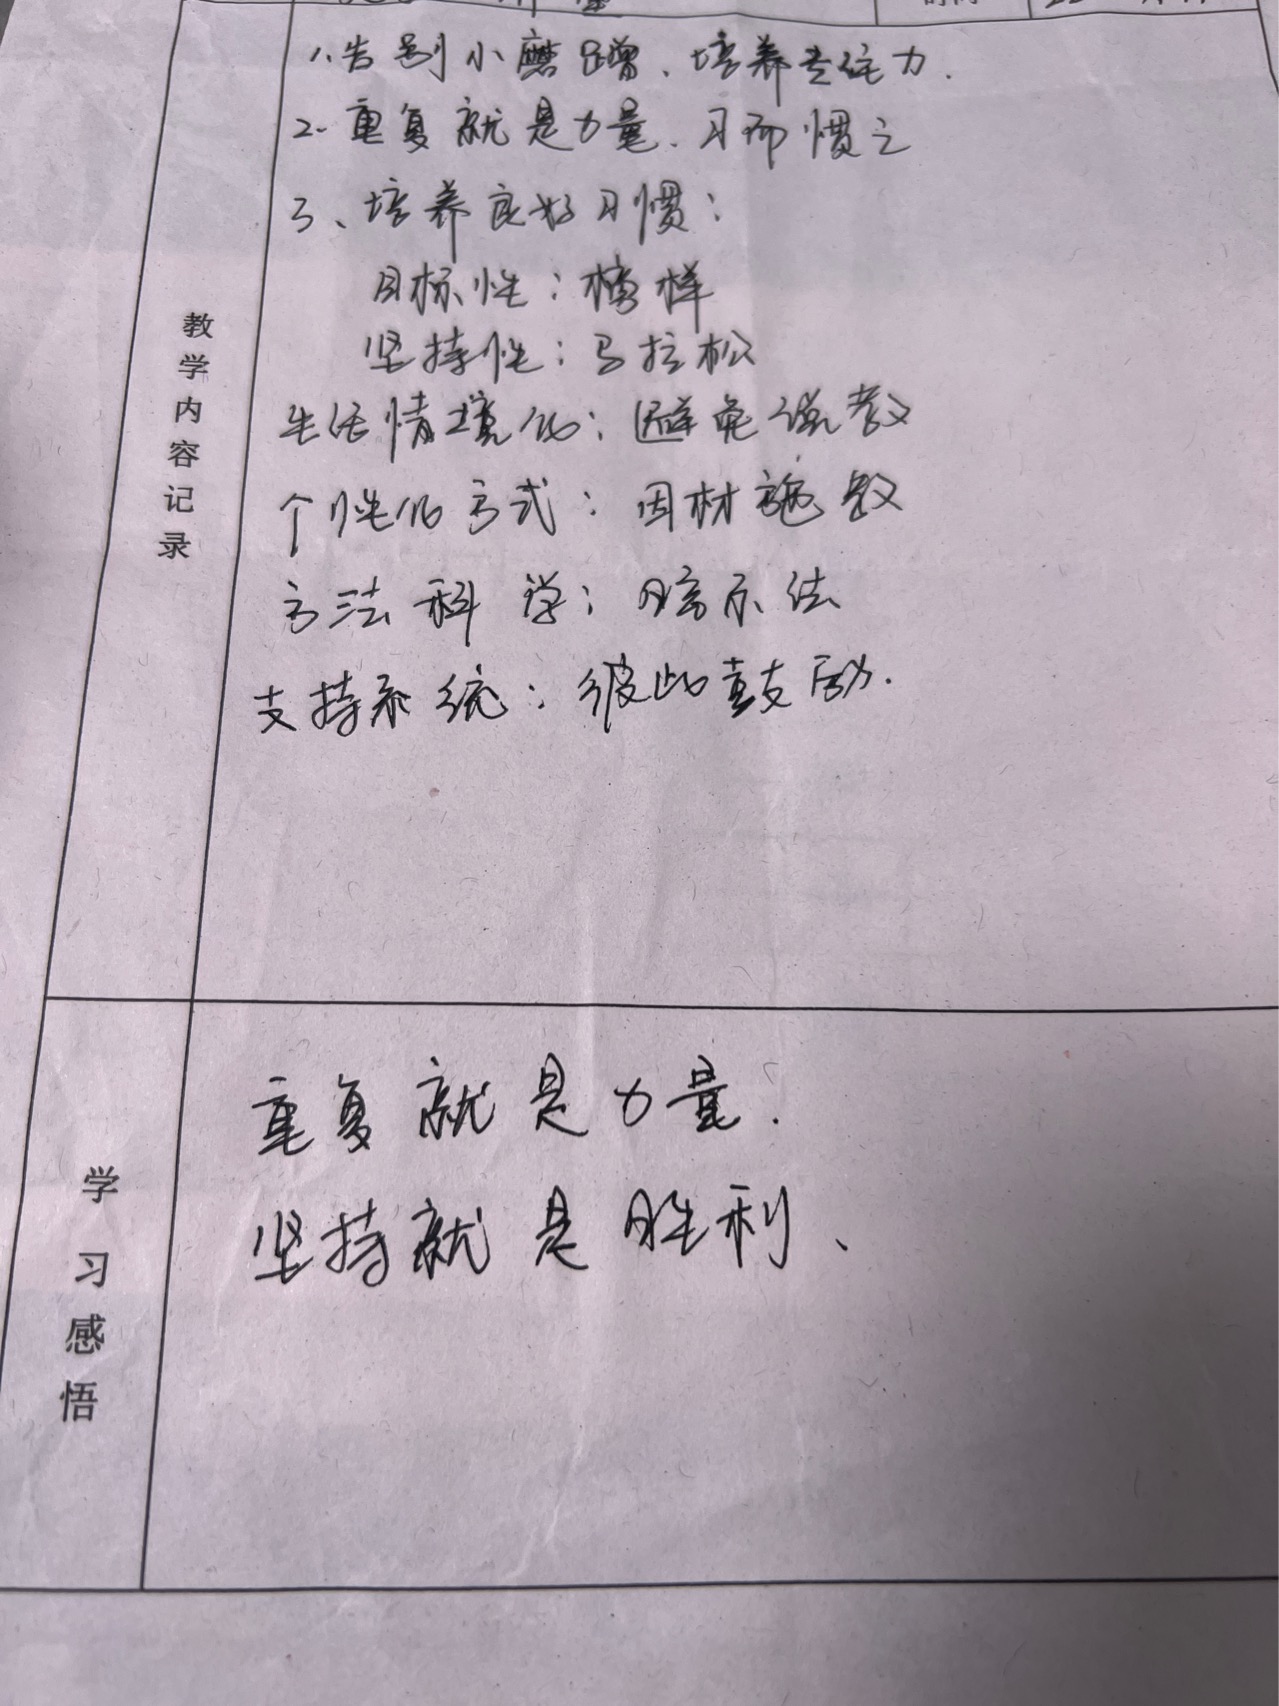 1.告别小磨蹭、培养专注力.
2.重复就是力量、习而惯之
3、培养良好习惯:
目标性:榜样
坚持性:马拉松
生活情境化:避免说教
个性化方式:因材施教
方法科学:暗示法
支持系统:彼此鼓励.
教学内容记录
重复就是力量.
坚持就是胜利、
学习感悟